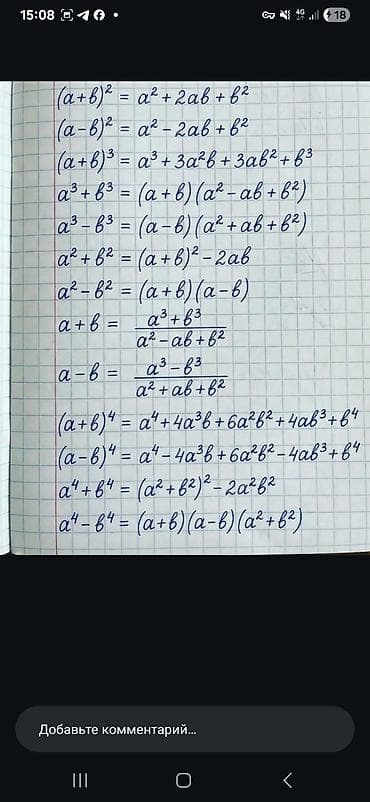 15:08 4G 18
(a+b)² = a² + 2ab + b²
(a-b)² = a² - 2ab + b²
(a+b)³ = a³ + 3a²b + 3ab² + b³
a³ + b³ = (a+b)(a² - ab + b²)
a³ - b³ = (a-b)(a² + ab + b²)
a² + b² = (a+b)² - 2ab
a² - b² = (a+b)(a-b)
a + b = (a³ + b³)/(a² - ab + b²)
a - b = (a³ - b³)/(a² + ab + b²)
(a+b)⁴ = a⁴ + 4a³b + 6a²b² + 4ab³ + b⁴
(a-b)⁴ = a⁴ - 4a³b + 6a²b² - 4ab³ + b⁴
a⁴ + b⁴ = (a² + b²)² - 2a²b²
a⁴ - b⁴ = (a+b)(a-b)(a² + b²)
Добавьте комментарий...